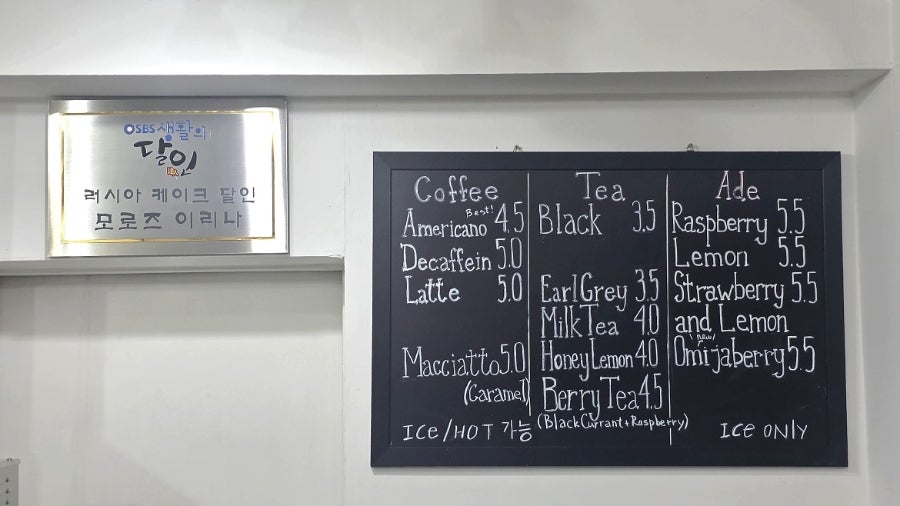 SBS 생활의
달인
러시아 케이크 달인
모로즈 이리나
Coffee
Best!
Americano 4.5
Decaffein 5.0
Latte 5.0
Macciatto 5.0
(Caramel)
ICE/HOT 가능
Tea
Black 3.5
Earl Grey 3.5
Milk Tea 4.0
Honey Lemon 4.0
Berry Tea 4.5
(Black Currant + Raspberry)
Ade
Raspberry 5.5
Lemon 5.5
Strawberry 5.5
and Lemon
Omijaberry 5.5
ICE ONLY